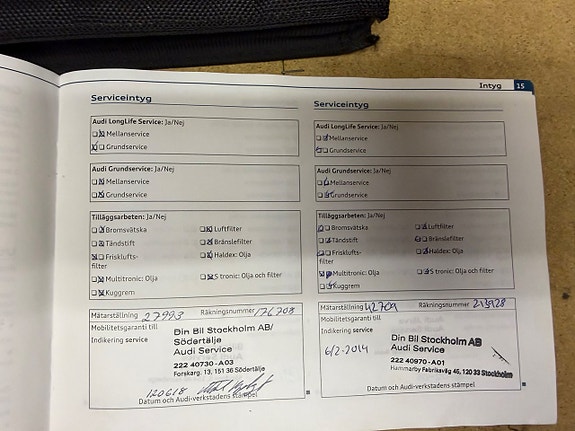 Intyg 15
Serviceintyg
Audi LongLife Service: Ja/Nej
Mellanservice
Grundservice
Audi Grundservice: Ja/Nej
Mellanservice
Grundservice
Tilläggsarbeten: Ja/Nej
Bromsvätska Luftfilter
Tändstift Bränslefilter
Frisklufts- Haldex: Olja
filter
Multitronic: Olja S tronic: Olja och filter
Kuggrem
Mätarställning 27993 Räkningsnummer 176708
Mobilitetsgaranti till
Indikering service
Din Bil Stockholm AB/
Södertälje
Audi Service
222 40730 - A03
Forskarg. 13, 151 36 Södertälje
120618
Datum och Audi-verkstadens stämpel
Serviceintyg
Audi LongLife Service: Ja/Nej
Mellanservice
Grundservice
Audi Grundservice: Ja/Nej
Mellanservice
Grundservice
Tilläggsarbeten: Ja/Nej
Bromsvätska Luftfilter
Tändstift Bränslefilter
Frisklufts- Haldex: Olja
filter
Multitronic: Olja S tronic: Olja och filter
Kuggrem
Mätarställning 42709 Räkningsnummer 213928
Mobilitetsgaranti till
Indikering service
6/2-2014
Din Bil Stockholm AB
Audi Service
222 40970-A01
Hammarby Fabriksväg 45, 120 33 Stockholm
Datum och Audi-verkstadens stämpel